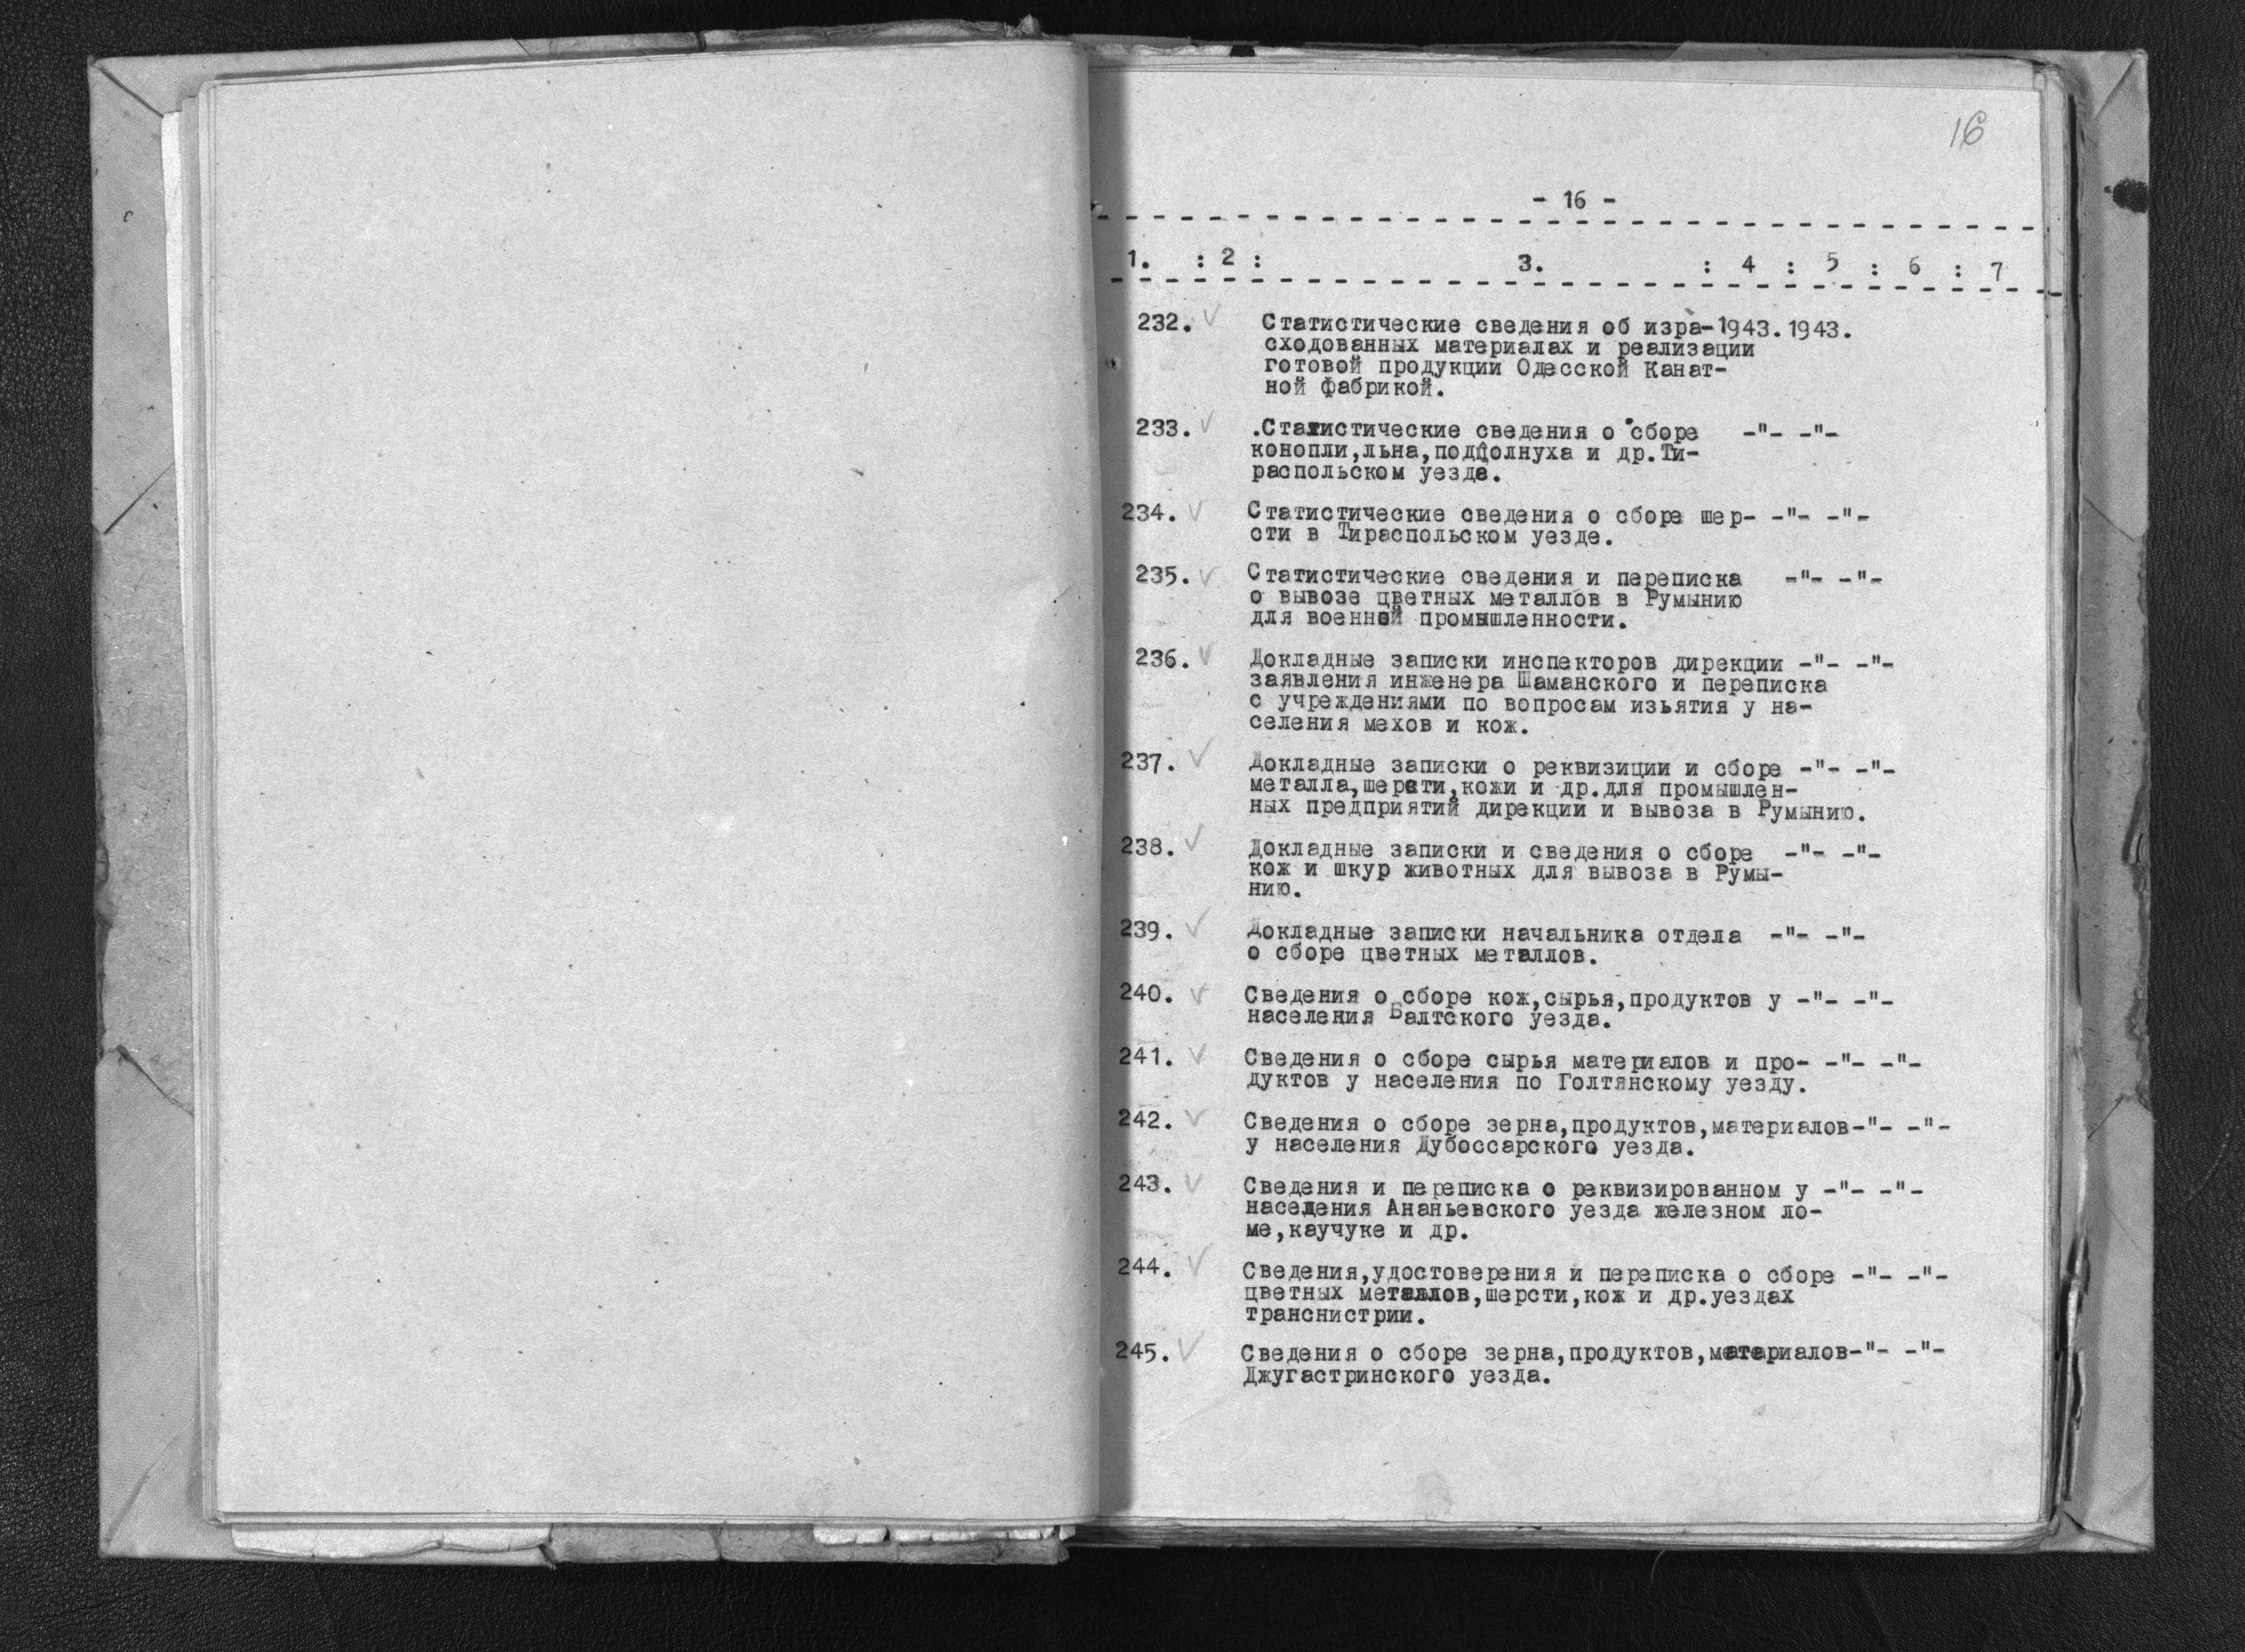 16
- 16 -
1. : 2 : 3. : 4 : 5 : 6 : 7
232. Статистические сведения об изра-1943.1943.
сходованных материалах и реализации
готовой продукции Одесской Канат-
ной фабрикой.
233. .Статистические сведения о сборе -"- -"-
конопли,льна,подсолнуха и др.Ти-
распольском уезде.
234. Статистические сведения о сборе шер- -"- -"-
сти в Тираспольском уезде.
235. Статистические сведения и переписка -"- -"-
о вывозе цветных металлов в Румынию
для военной промышленности.
236. Докладные записки инспекторов дирекции -"- -"-
заявления инженера Шаманского и переписка
с учреждениями по вопросам изьятия у на-
селения мехов и кож.
237. Докладные записки о реквизиции и сборе -"- -"-
металла,шерсти,кожи и др.для промышлен-
ных предприятий дирекции и вывоза в Румынию.
238. Докладные записки и сведения о сборе -"- -"-
кож и шкур животных для вывоза в Румы-
нию.
239. Докладные записки начальника отдела -"- -"-
о сборе цветных металлов.
240. Сведения о сборе кож,сырья,продуктов у -"- -"-
населения Балтского уезда.
241. Сведения о сборе сырья материалов и про- -"- -"-
дуктов у населения по Голтянскому уезду.
242. Сведения о сборе зерна,продуктов,материалов-"- -"-
у населения Дубоссарского уезда.
243. Сведения и переписка о реквизированном у -"- -"-
населения Ананьевского уезда железном ло-
ме,каучуке и др.
244. Сведения,удостоверения и переписка о сборе -"- -"-
цветных металлов,шерсти,кож и др.уездах
транснистрии.
245. Сведения о сборе зерна,продуктов,материалов-"- -"-
Джугастринского уезда.